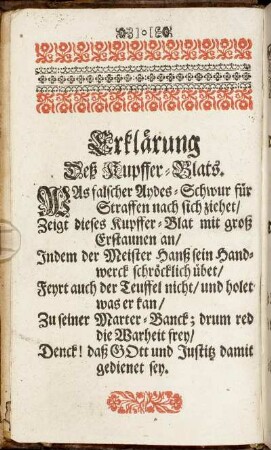 Erklärung
Deß Kupffer-Blats.
WAs falscher Aydes-Schwur für
Straffen nach sich ziehet/
Zeigt dieses Kupffer-Blat mit groß
Erstaunen an/
Indem der Meister Hanß sein Hand-
werck schröcklich übet/
Feyrt auch der Teuffel nicht/ und holet
was er kan/
Zu seiner Marter-Banck; drum red
die Warheit frey/
Denck! daß GOtt und Justitz damit
gedienet sey.